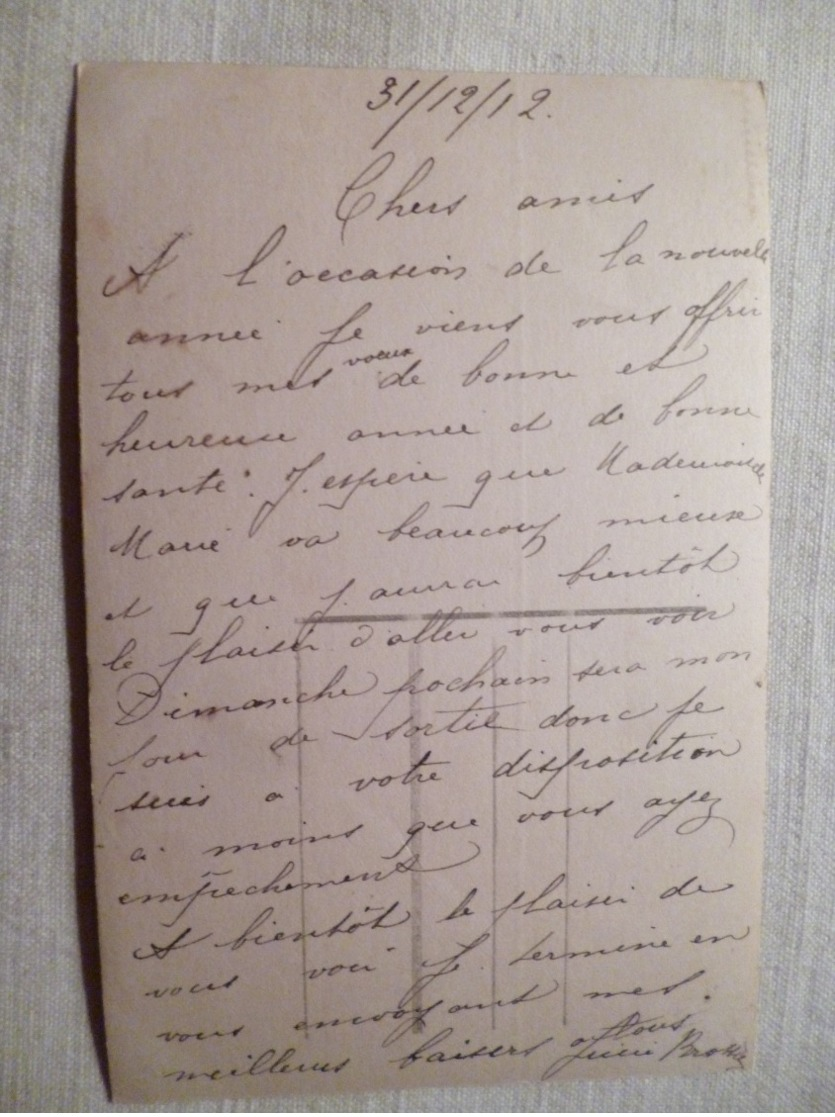 31/12/12.
Chers amis
A l'occasion de la nouvelle
année je viens vous offrir
tous mes voeux de bonne et
heureuse annee et de bonne
santé. J'espere que Mademoiselle
Marie va beaucoup mieux
et que j'aurai bientôt
le plaisir d'aller vous voir
Dimanche prochain sera mon
jour de sortie donc je
suis a votre disposition
a moins que vous ayez
empêchement
A bientôt le plaisir de
vous voir je termine en
vous envoyant mes
meilleurs baisers a tous